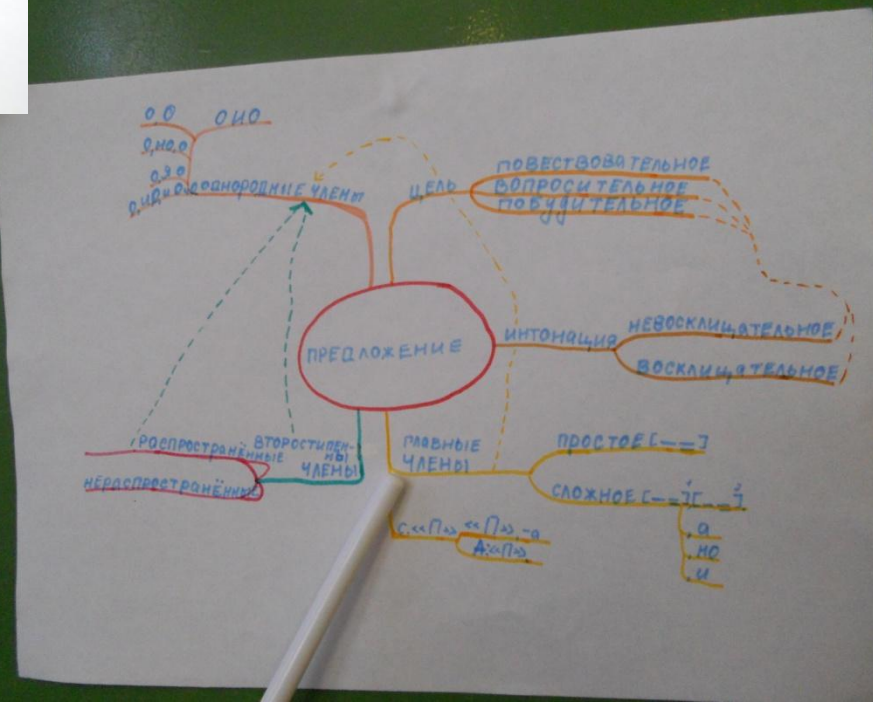 О, О
О И О
О, НО О
О, А О
ОДНОРОДНЫЕ ЧЛЕНЫ
ЦЕЛЬ
ПОВЕСТВОВАТЕЛЬНОЕ
ВОПРОСИТЕЛЬНОЕ
ПОБУДИТЕЛЬНОЕ
ПРЕДЛОЖЕНИЕ
ИНТОНАЦИЯ
НЕВОСКЛИЦАТЕЛЬНОЕ
ВОСКЛИЦАТЕЛЬНОЕ
РАСПРОСТРАНЁН-
НЫЕ
НЕРАСПРОСТРАНЁННЫЕ
ВТОРОСТИПЕН-
НЫ
ЧЛЕНЫ
ГЛАВНЫЕ
ЧЛЕНЫ
ПРОСТОЕ [— ==]
СЛОЖНОЕ [— ==], [— ==]
, а
, но
, и
«П», -а
А: «П».